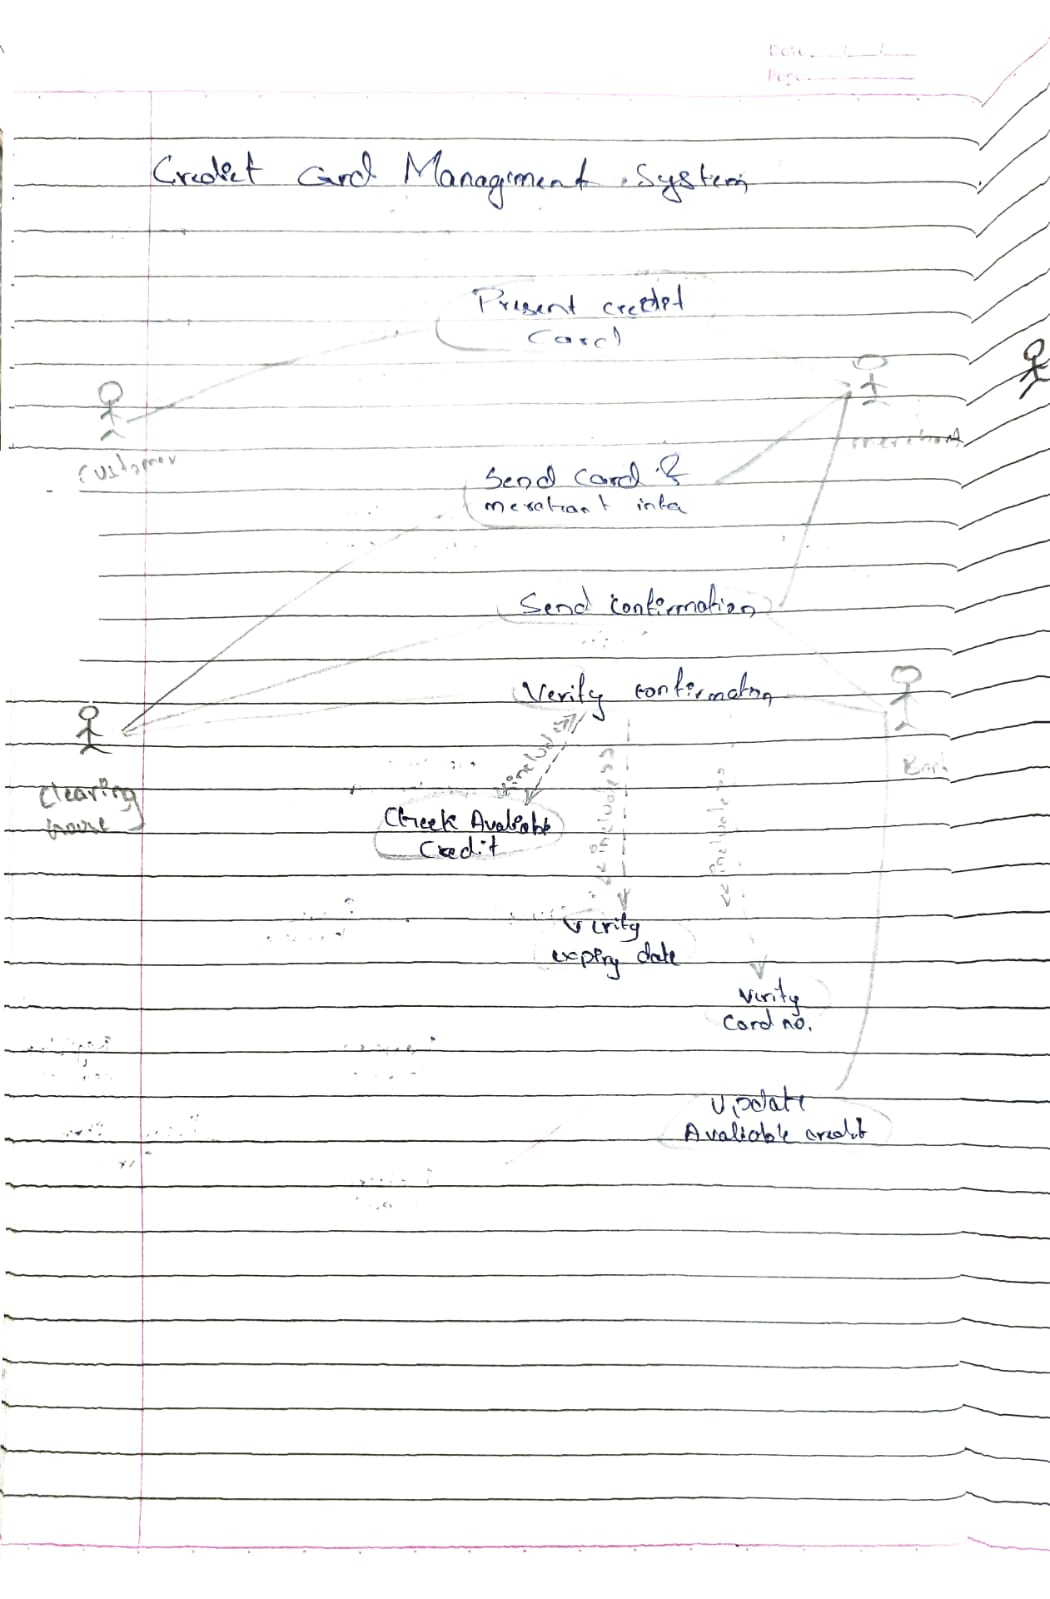 Date
Page
Credit Card Management System
Present credit
Card
Customer
merchant
Send Card &
merchant info
Send confirmation
Verify confirmatn
Bank
Clearing
house
<<include>>
<<include>>
<<include>>
Check Avaliable
Credit
Verify
expiry date
Verify
Card no.
Update
Avaliable credit